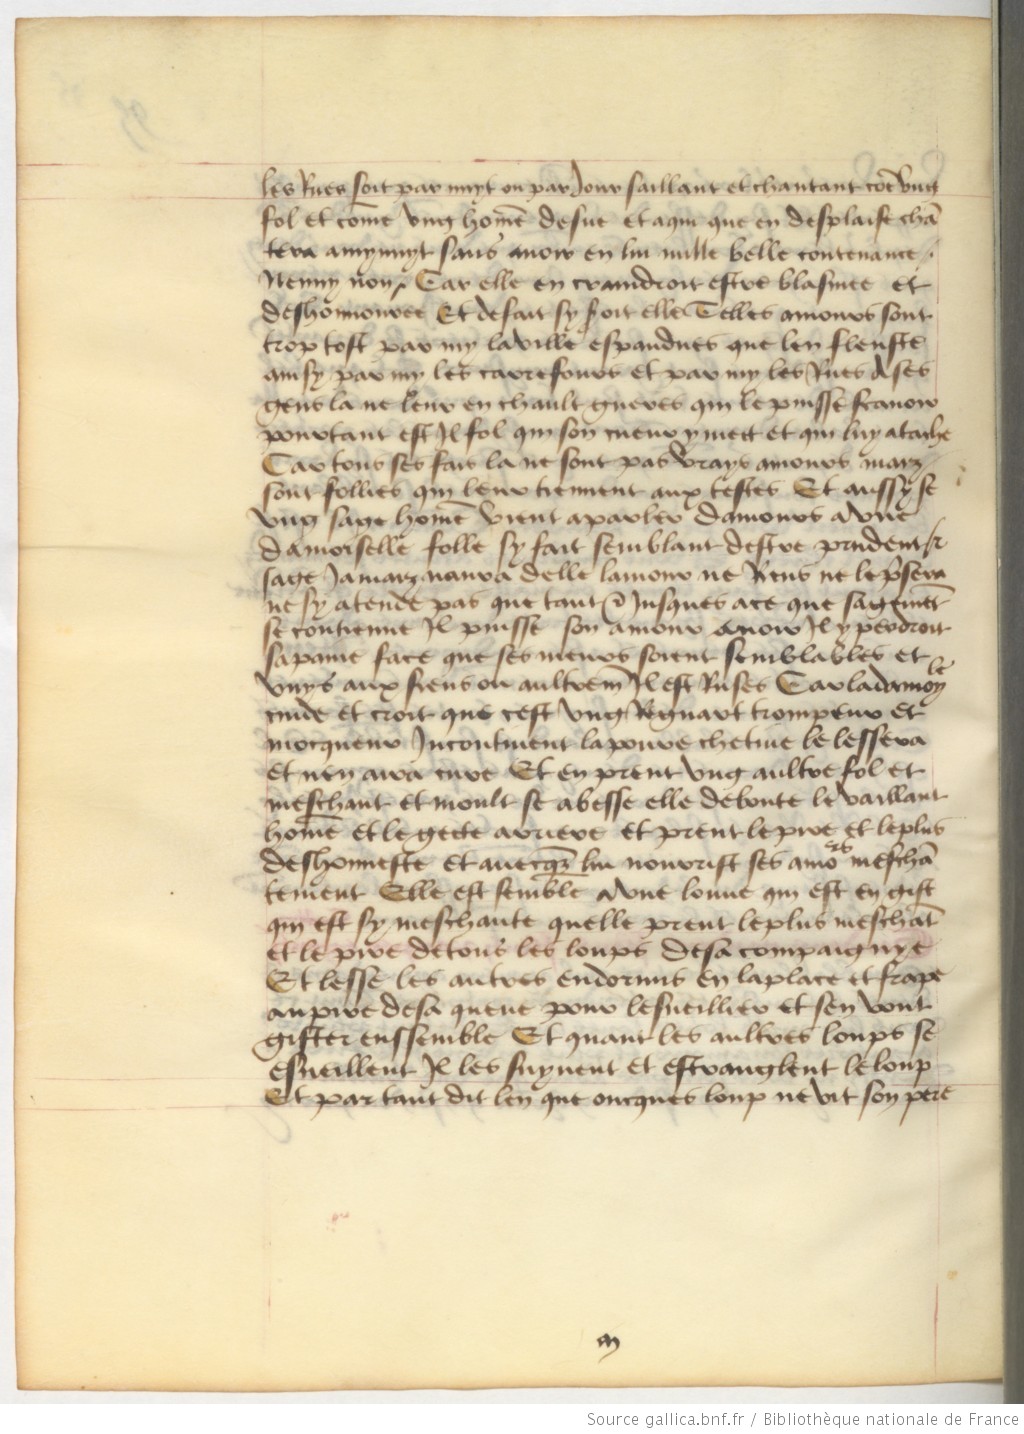 les Rues soit par nuyt ou par Jour saillant et chantant cõe vng
fol et cõme vng hõme desue et a qui que en desplaise chã
tera a mynuyt sans auoir en lui nulle belle contenance /
Nenny non / Car elle en craindroit estre blasmee et
deshõnnouree Et de fait sy soit elle Telles amours sont
trop tost par my la ville espandues que len fleuste
ainsy par my les carrefours et par my les Rues A ses
gens la ne leur en chault gueres qui le puisse scauoir
pourtant est Il fol qui son cueur y mett et qui luy atache
Car tous ses fais la ne sont pas vrays amours maiz
sont follies qui leur tiennent aux testes Et aussy se
vng sage hõme vient a parler damours a vne
damoiselle folle sy fait semblant destre prudent &
sage Jamaiz naura delle lamour ne Riens ne le p̃sera
ne sy atende pas que tant Jusques a ce que sagemẽt
se contienne Il puisse son amour auoir Il y perdroit
sa paine face que ses meurs soient semblables et
vnys aux siens ou aultremẽt Il est Ruses Car la damoy le
cuide et croit que cest vng Regnart trompeur et
mocqueur Incontinent la poure chetiue le lessera
et nen aura cure Et en prent vng aultre fol et
meschant et moult se abesse elle deboute le vaillant
hõme et le gecte arriere et prent le pire et le plus
deshonneste et auecqz lui nourrist ses amors meschã
tement Elle est semble a vne louue qui est en gist
qui est sy meschante quelle prent le plus meschãt
et le pire de tous les loups de sa compaignye
Et lesse les autres endormis en la place et frape
au pire de sa queue pour lesueillier et sen vont
gister enssemble Et quant les aultres loups se
esueillent Il les suyuent et estranglent le loup
Et par tant dit len que oncques loup ne vit son pere